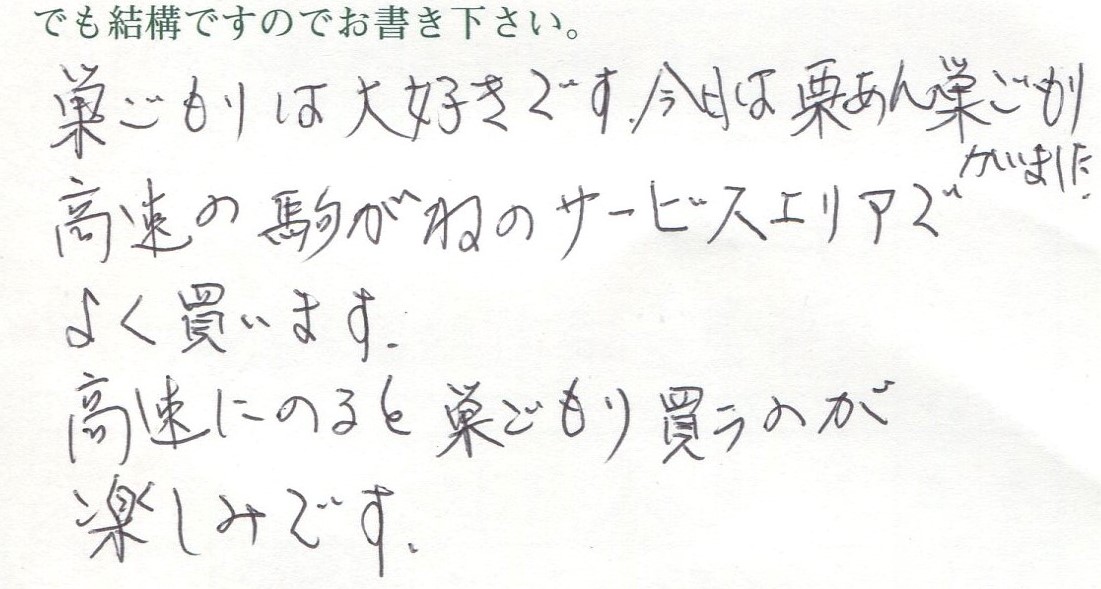 でも結構ですのでお書き下さい。
巣ごもりは大好きです.今日は栗あん巣ごもり
かいました.
高速の駒がねのサービスエリアで
よく買います.
高速にのると巣ごもり買うのが
楽しみです.